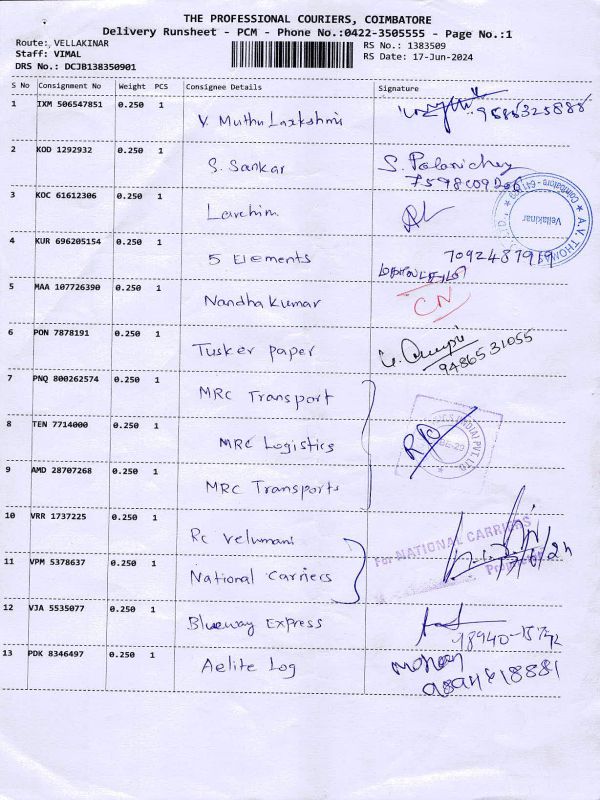 THE PROFESSIONAL COURIERS, COIMBATORE
Delivery Runsheet - PCM - Phone No.:0422-3505555 - Page No.:1
Route: VELLAKINAR
RS No.: 1383509
Staff: VIMAL
RS Date: 17-Jun-2024
DRS No.: DCJB138350901
S No Consignment No Weight PCS Consignee Details Signature
1 IXM 506547851 0.250 1 V. Muthu Laxkshmi
2 KOD 1292932 0.250 1 S. Sankar S. Palanichey
3 KOC 61612306 0.250 1 Larchim
Coimbatore - 641 * A.V. THOM Vellakinar
4 KUR 696205154 0.250 1 5 Elements 7092487919
5 MAA 107726390 0.250 1 Nandha Kumar CN
6 PON 7878191 0.250 1 Tusker paper 9486531055
7 PNQ 800262574 0.250 1 MRC Transport
8 TEN 7714000 0.250 1 MRC Logistics
(INDIA) PVT. LTD
9 AMD 28707268 0.250 1 MRC Transports
10 VRR 1737225 0.250 1 Rc Velumani
For NATIONAL CARRIERS
11 VPM 5378637 0.250 1 National Carriers
12 VJA 5535077 0.250 1 Blueway Express
13 PDK 8346497 0.250 1 Aelite Log